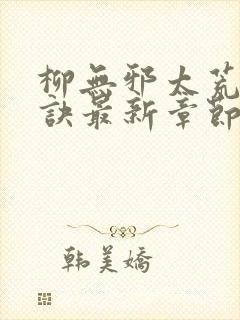 柳無邪太荒
訣最新章節
韩美嬌